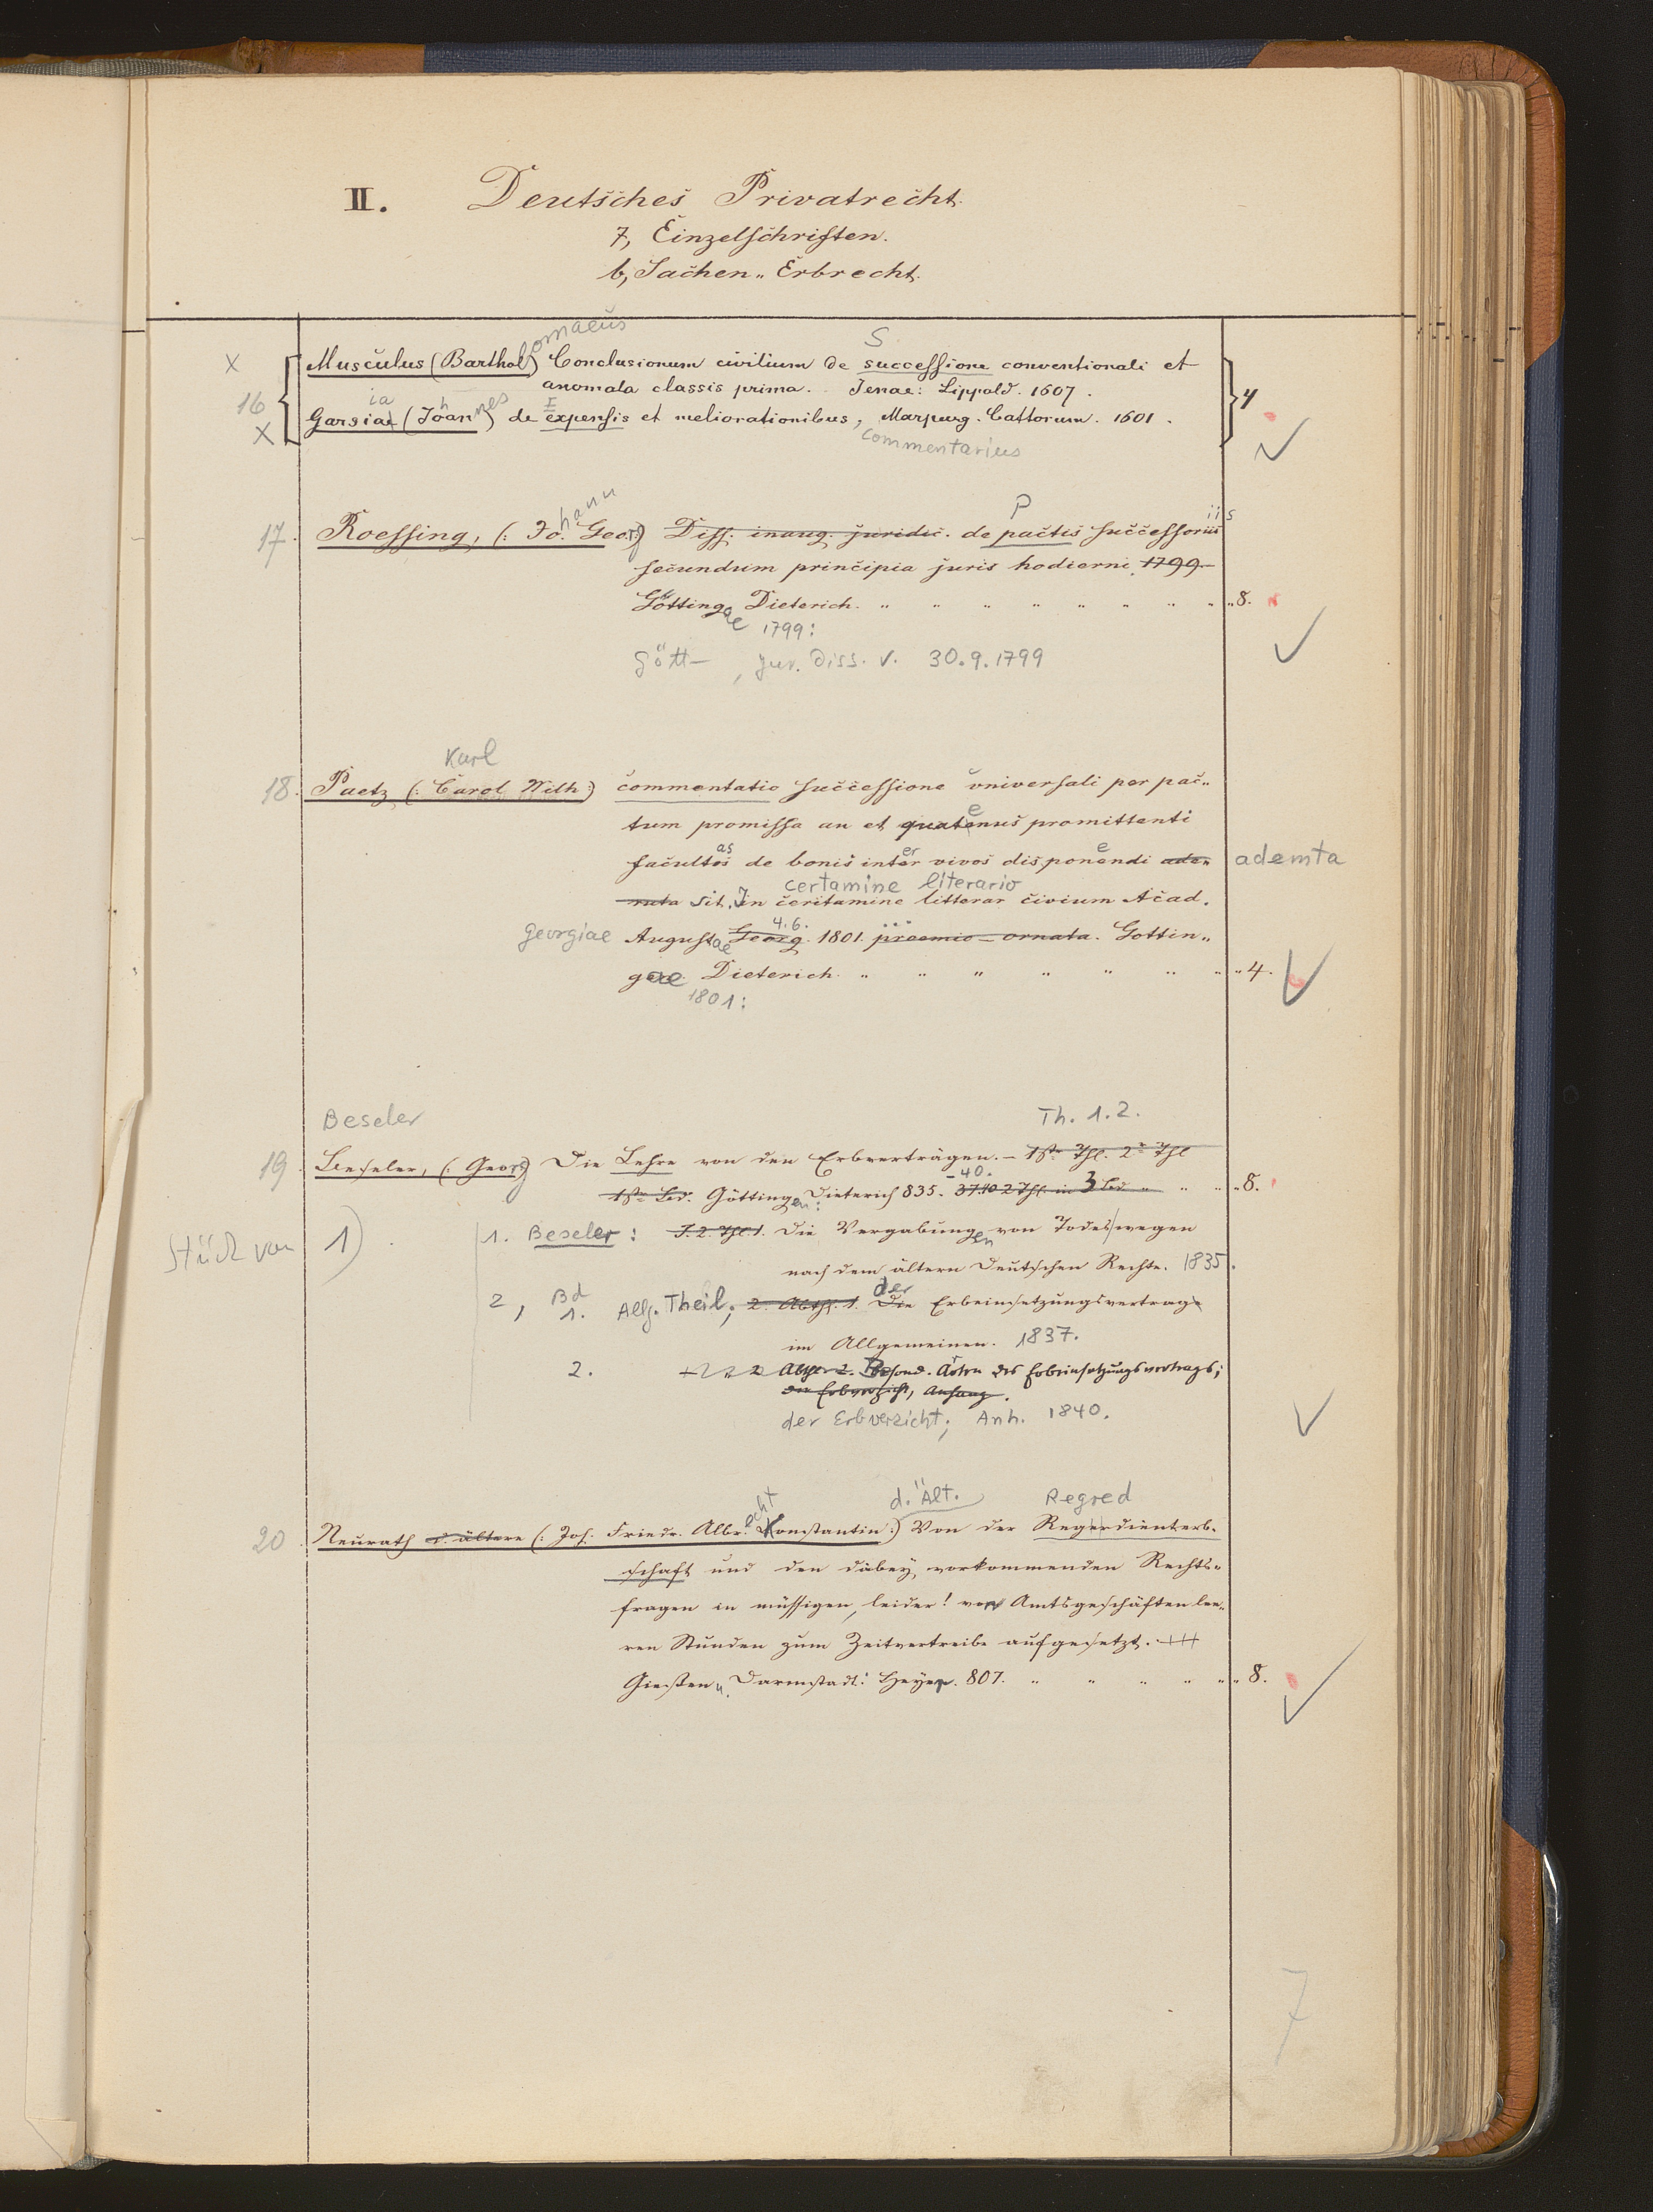 II. Deutsches Privatrecht.
7, Einzelschriften.
b, Sachen „ Erbrecht.
omaeus S
x Musculus (Barthol) Conclusionum civilium de successione conventionali et
anomala classis prima. Jenae: Lippold. 1607.
16 4
ia h nes I
x Garsiae (Joan) de expensis et meliorationibus, Marpurg. Cattorum. 1601.
commentarius
hann P iis
17. Roessing, (: Jo. Georg) Diss. inaug. juridic. de pactis successoriis
secundum principia juris hodierni 1799
Göttingae Dieterich. „ „ „ „ „ „ „ „ 8.
1799:
Gött , jur. Diss. v. 30.9.1799
Karl
18. Paetz (: Carol Wilh:) commentatio successione universali per pac„
tum promissa an et quatenus promittenti
as er e
facultas de bonis inter vivos disponendi adem ademta
certamine literario
sit. In ceritamine litterar civium Acad.
4.6.
Georgiae Augustae Georg. 1801. praemio ornata. Gottin„
gae Dieterich. „ „ „ „ „ „ „ 4.
1801:
Beseler Th. 1.2.
19. Beseler, (: Georg) Die Lehre von den Erbverträgen. – 1str Thl. 2r Thl
-40.
1str Bd. Göttingen: Dieterich 835. 37.40 2 Thl. in 3 Bd „ „ „ 8.
Stück von 1) 1. Beseler: Thl. 1. Die Vergabungen von Todes wegen
nach dem ältern Deutschen Rechte. 1835.
2, Bd 1. Allg. Theil; 2. Abth. 1. Die der Erbeinsetzungsvertrag
im Allgemeinen. 1837.
2. 2. Besond. Arten des Erbeinsetzungsvertrags;
der Erbverzicht, Anhang.
der Erbverzicht; Anh. 1840.
echt d. Ält. Regred
20. Neurath d. ältere (: Joh. Friedr. Albr. Konstantin:) Von der Regerdienterb„
schaft und den dabey vorkommenden Rechts„
fragen in müssigen, leider! von Amtsgeschäften lee„
ren Stunden zum Zeitvertreibe aufgesetzt.
Giessen u. Darmstadt: Heyer. 807. „ „ „ „ „ „ 8.
7